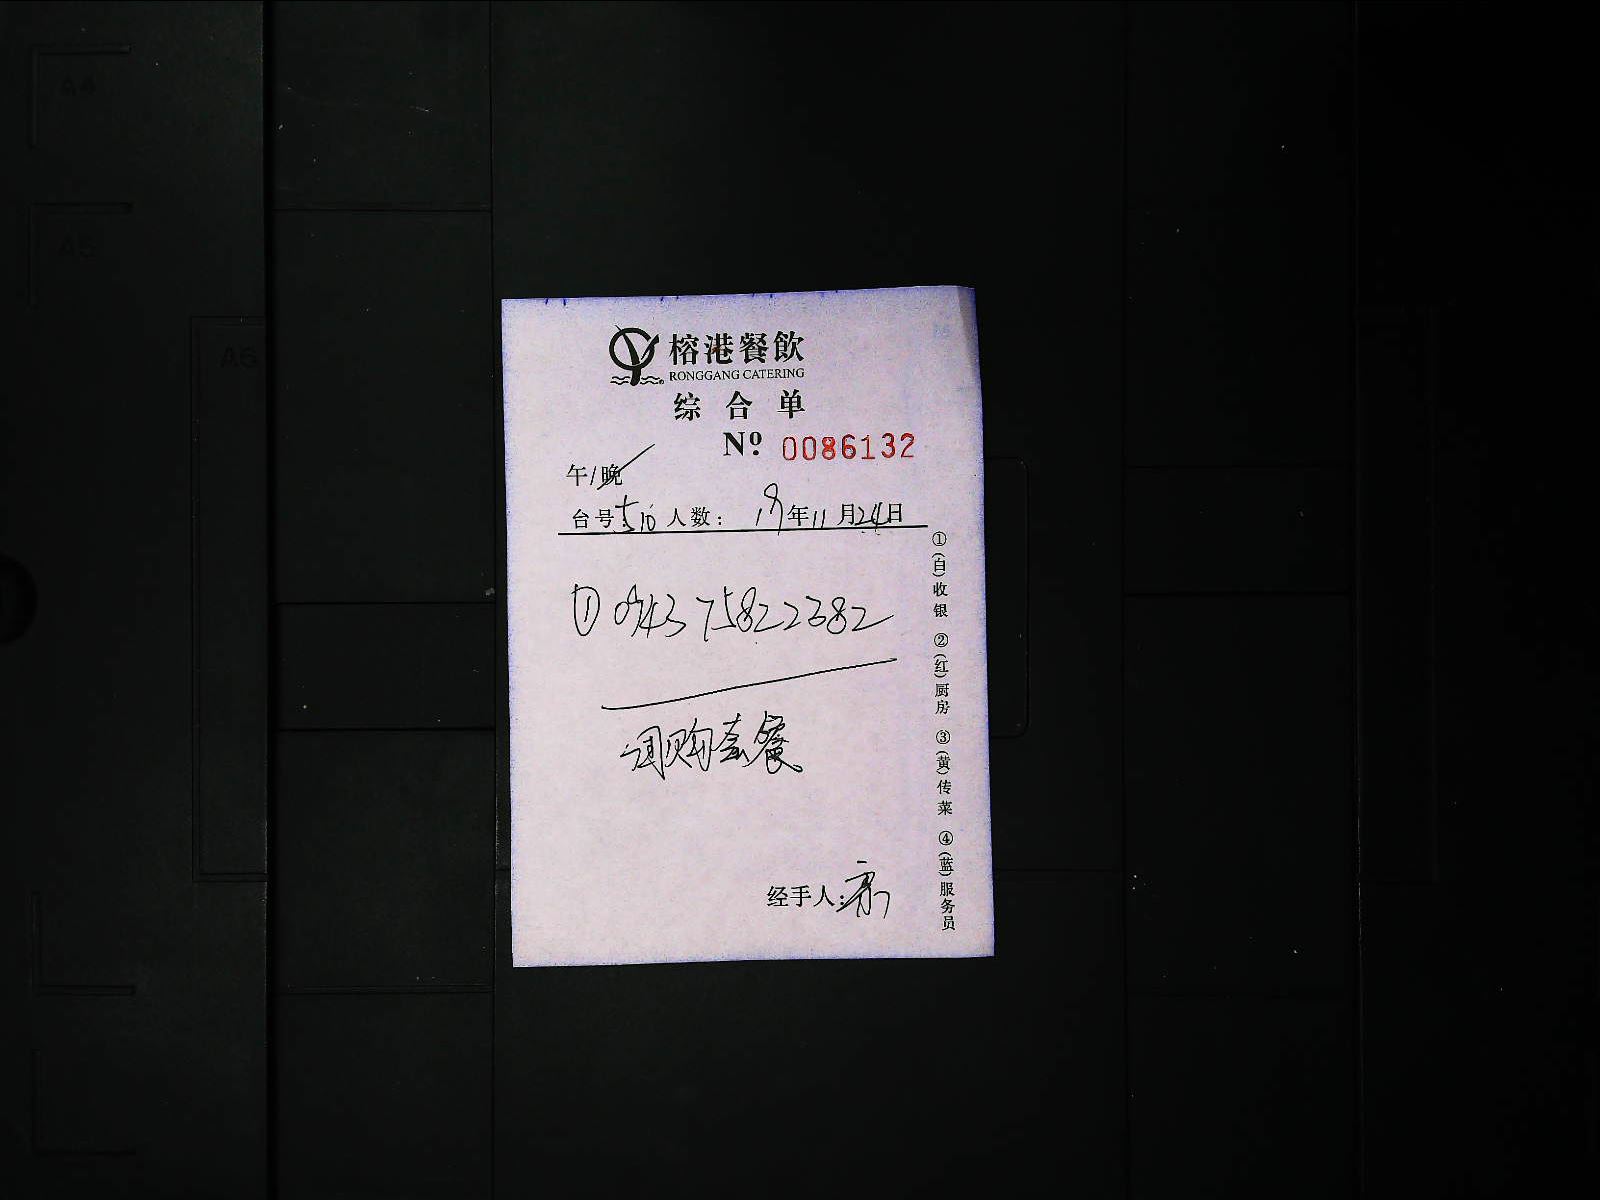 榕港餐飲
RONGGANG CATERING
综合单
Nº 0086132
午/晚
台号:510 人数: 19年11月24日
① 0943 75822382
团购套餐
经手人:
①(白)收银 ②(红)厨房 ③(黄)传菜 ④(蓝)服务员
A4
A5
A6